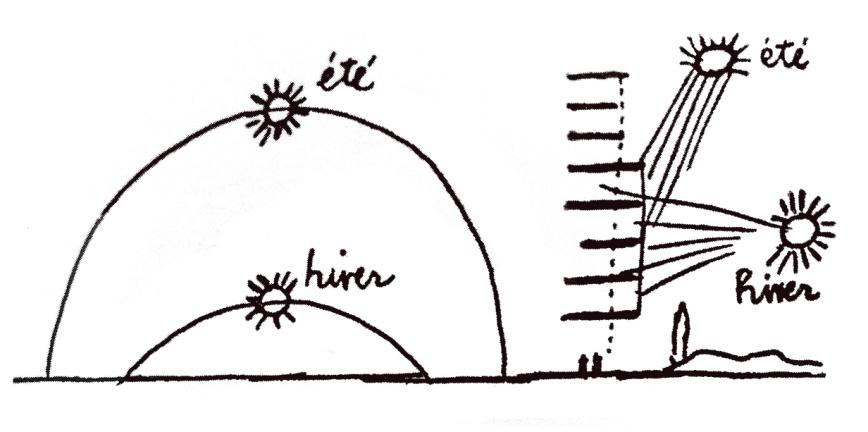 été
hiver
été
hiver